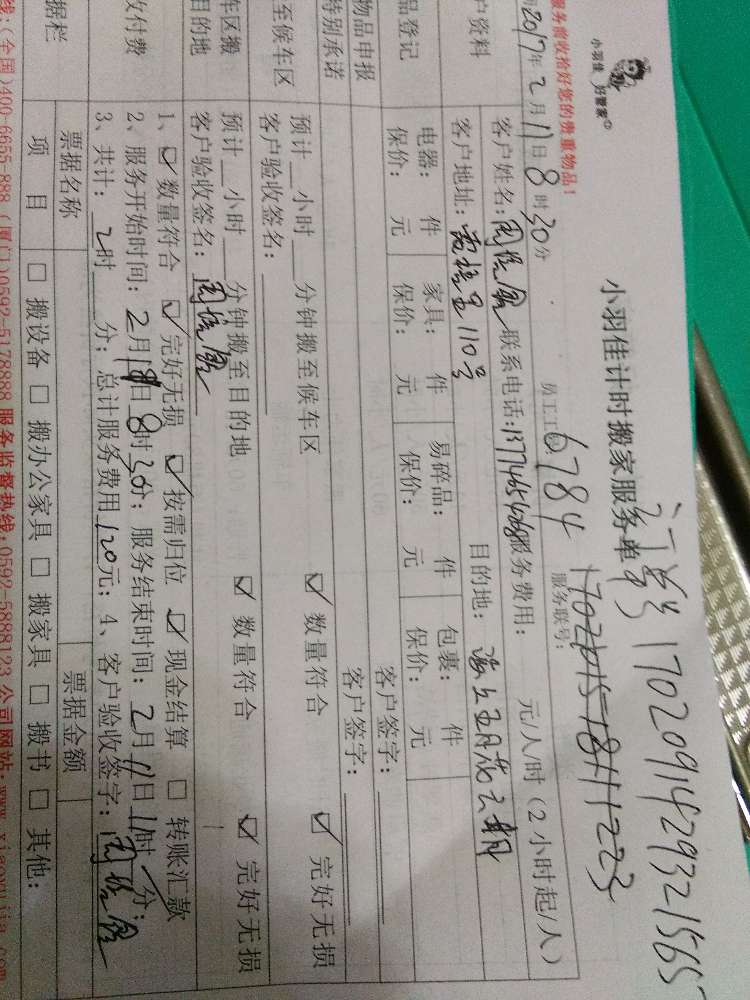 服务前收拾好您的贵重物品！
小羽佳 好管家
小羽佳计时搬家服务单
17020911429321565
员工工 6784
服务联号：
2017年2月11日8时30分
户资料
客户姓名： 联系电话： 服务费用： 元/人/时（2小时起/人）
客户地址： 110号 目的地：
品登记
电器： 件 家具： 件 易碎品： 件 包裹： 件
保价： 元 保价： 元 保价： 元 保价： 元
物品申报
客户签字：
特别承诺
客户签字：
至候车区
预计 小时 分钟搬至候车区 ☑ 数量符合 ☑ 完好无损
客户验收签名：
车区搬
目的地
预计 小时 分钟搬至目的地 ☑ 数量符合 ☑ 完好无损
客户验收签名：
收付费
1、☑ 数量符合 ☑ 完好无损 ☑ 按需归位 ☑ 现金结算 □ 转账汇款
2、服务开始时间：2月 日8时30分；服务结束时间：2月11日11时 分；
3、共计：2时 分；总计服务费用120元；4、客户验收签字：
据栏
票据名称 票据金额
项 目 □ 搬设备 □ 搬办公家具 □ 搬家具 □ 搬书 □ 其他：
线：(全国)400-6655-888 (厦门)0592-5178888 服务监督热线：0592-5888123 公司网站：www.xiaoyujia.com